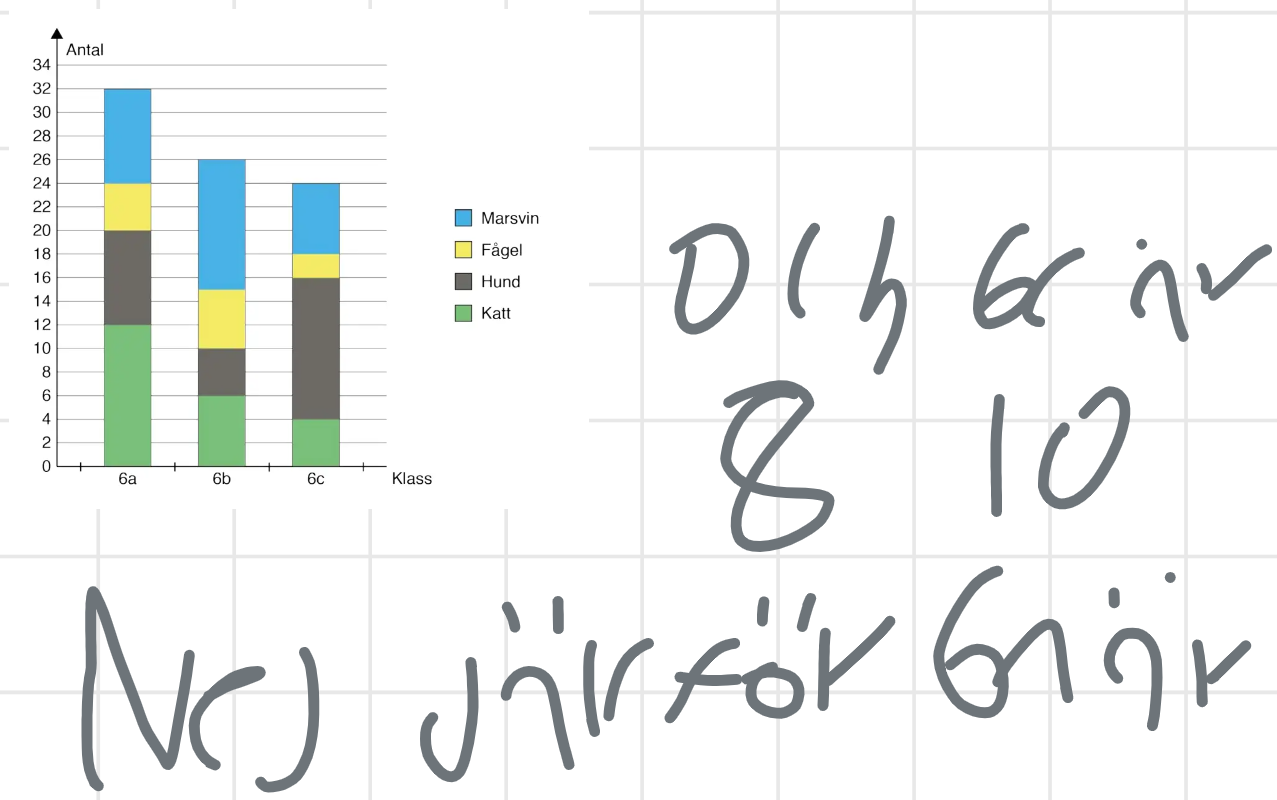 Antal
34
32
30
28
26
24
22
20
18
16
14
12
10
8
6
4
2
0
6a 6b 6c Klass
Marsvin
Fågel
Hund
Katt
Och 6c är
8 10
Nej därför 6a är